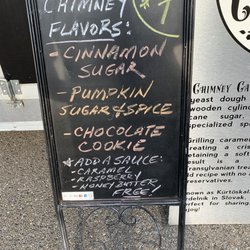 CHIMNEY
FLAVORS:
- CINNAMON
SUGAR
- PUMPKIN
SUGAR & SPICE
- CHOCOLATE
COOKIE
* ADD A SAUCE:
- CARAMEL
- RASPBERRY
- HONEY BUTTER
FREE!
CHIMNEY CA
yeast dough
wooden cylin
cane sugar.
specialized sp
Grilling caramel
creating a cris
retaining a soft
result is a
transylvanian trea
added nuts
recipe with no
preservatives.
Known as Kürtőska
in Slovak.
Perfect for sharing
enjoy!